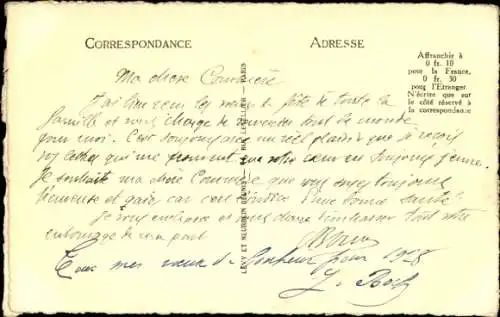 CORRESPONDANCE
ADRESSE
Affranchir à
0 fr. 10
pour la France,
0 fr. 30
pour l'Étranger.
N'écrire que sur
le côté réservé à
la correspondance
LÉVY ET NEURDEIN RÉUNIS, 44, RUE LETELLIER — PARIS
Ma chère Commère
J'ai bien reçu les vœux de fête de toute la
famille et vous charge de remercier tout le monde
pour moi. C'est toujours avec un réel plaisir que je reçois
vos lettres qui me prouvent que votre cœur est toujours jeune.
Je souhaite ma chère Commère que vous soyez toujours
heureuse et gaie, car c'est l'indice d'une bonne santé
Je vous embrasse et vous charge d'embrasser tout votre
entourage de ma part
Tous mes vœux de bonheur pour 1928